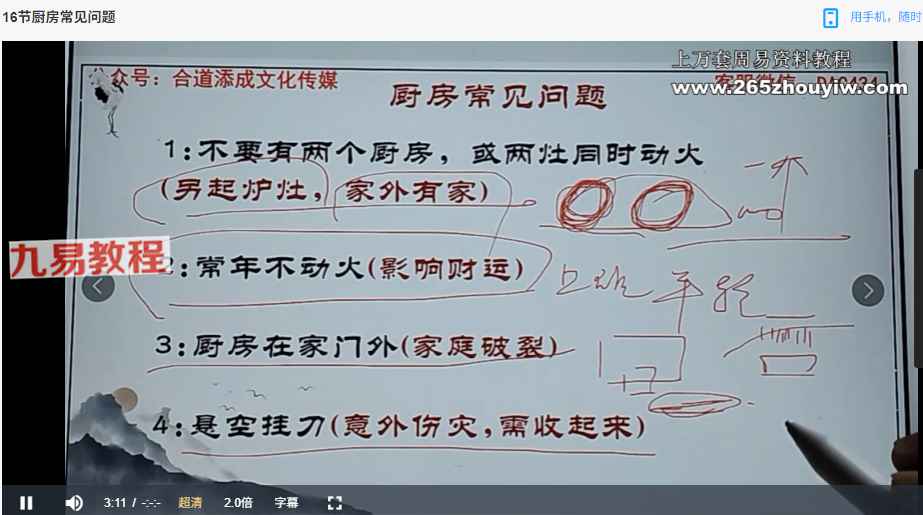 16节厨房常见问题
用手机，随时
上万套周易资料教程
公众号：合道添成文化传媒
www.265zhouyiw.com
厨房常见问题
1：不要有两个厨房，或两灶同时动火
(另起炉灶，家外有家)
九易教程
2：常年不动火(影响财运)
3：厨房在家门外(家庭破裂)
4：悬空挂刀(意外伤灾，需收起来)
3:11 / -:-:-
超清
2.0倍
字幕